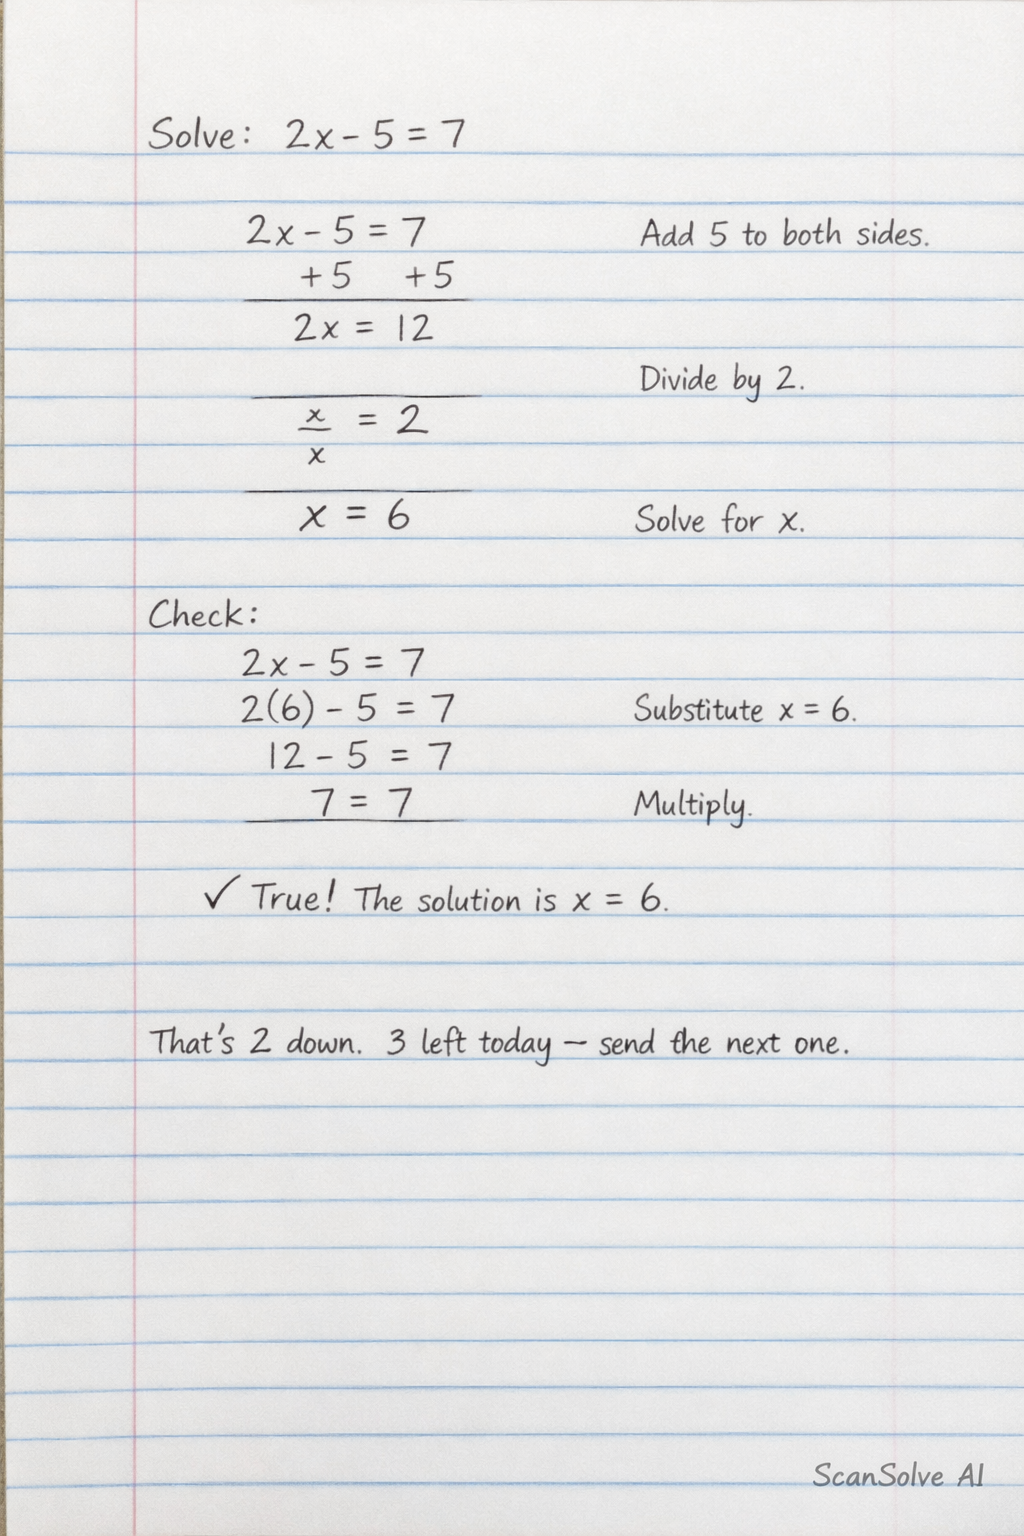 Solve: 2x - 5 = 7
2x - 5 = 7 Add 5 to both sides.
+5 +5
2x = 12
Divide by 2.
x/x = 2
x = 6 Solve for x.
Check:
2x - 5 = 7
2(6) - 5 = 7 Substitute x = 6.
12 - 5 = 7
7 = 7 Multiply.
✓ True! The solution is x = 6.
That's 2 down. 3 left today — send the next one.
ScanSolve AI